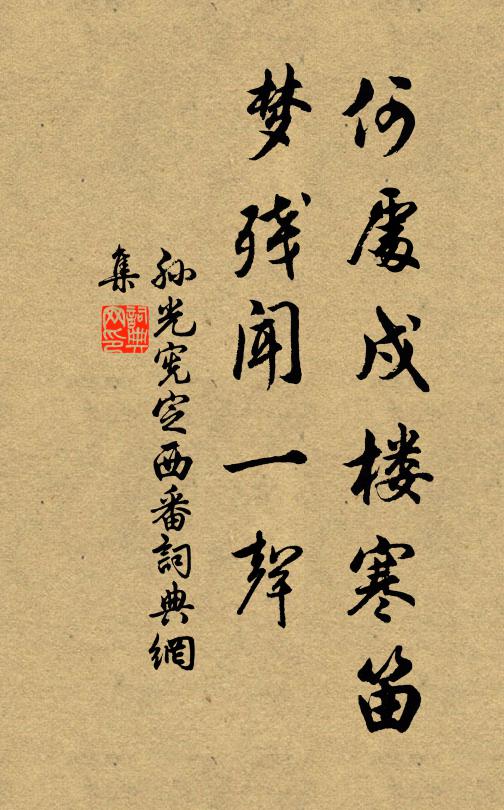 何處戍楼寒笛
梦残闻一聲
孙光宪定西番詞典網
集
詞典网印